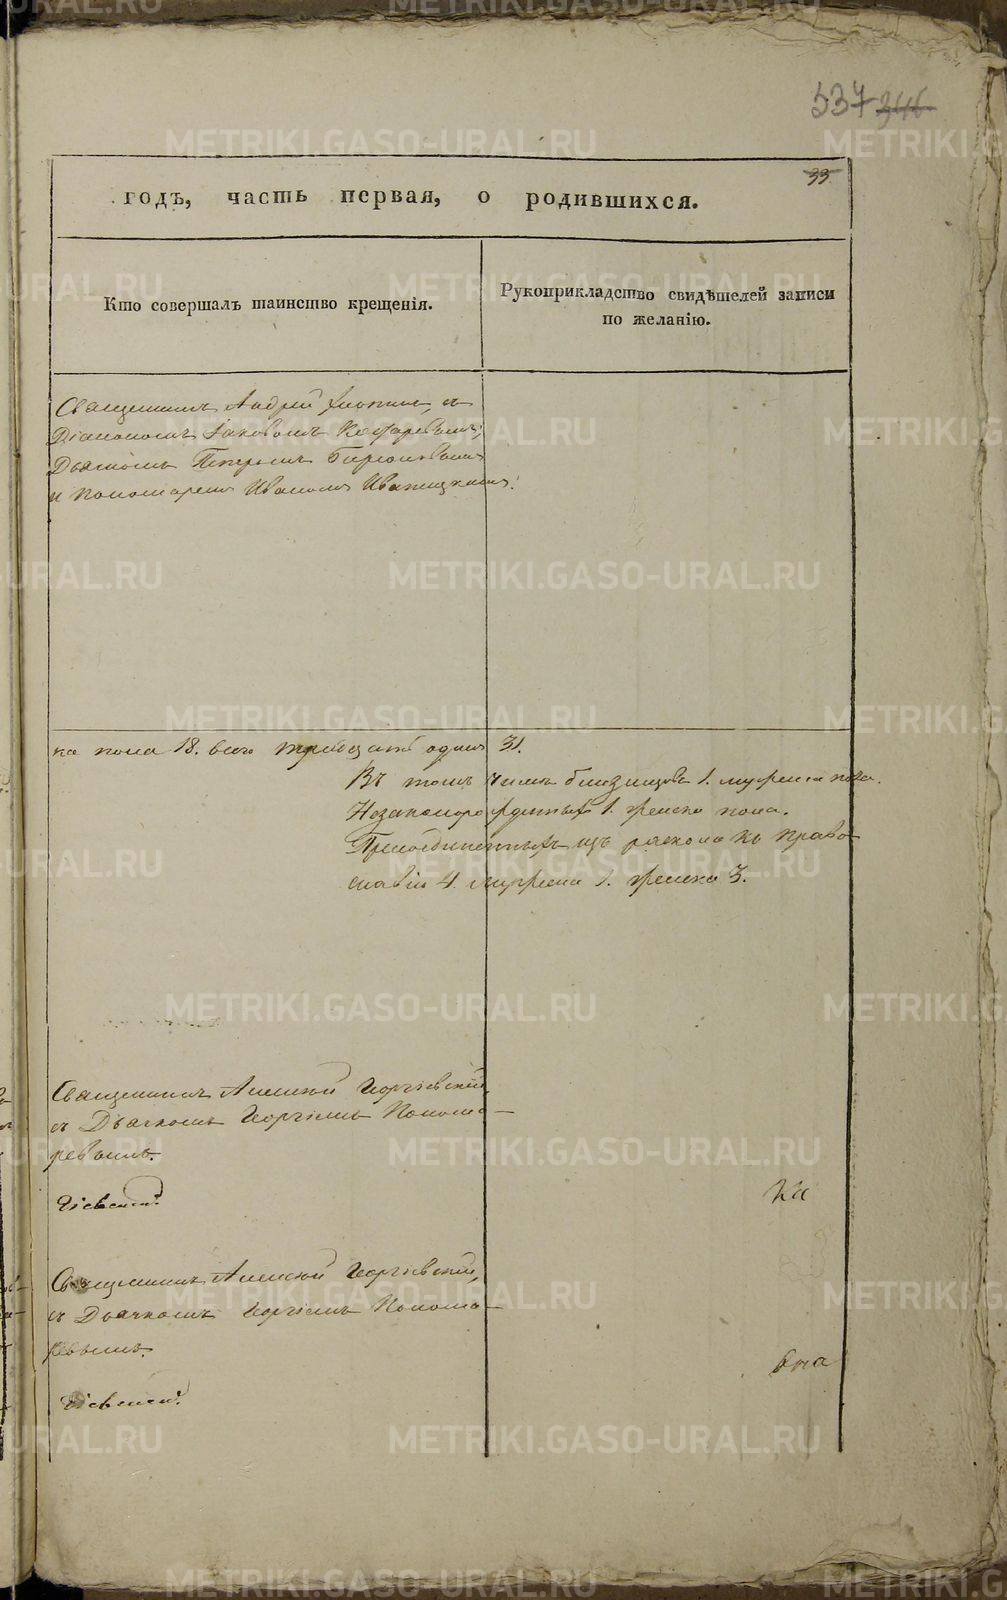 537 346
33
годъ, часть первая, о родившихся.
Кто совершалъ таинство крещенія.
Рукоприкладство свидѣтелей записи
по желанію.
Священникъ Андрей съ
Діакономъ Іаковомъ
Дьячкомъ Петромъ
и Пономаремъ Иваномъ Иваницкимъ.
на пола 18. всего тридцать одинъ 31.
Въ томъ числѣ близнецовъ 1. мужеска пола.
Незаконорожденныхъ 1. женска пола.
Присоединенныхъ изъ раскола къ право
славію 4. мужеска 1. женска 3.
Священникъ Алексѣй Георгіевскій,
съ Дьячкомъ Георгіемъ Понома-
ревымъ.
Священникъ Алексѣй Георгіевскій,
съ Дьячкомъ Георгіемъ Понома-
ревымъ.
METRIKI.GASO-URAL.RU